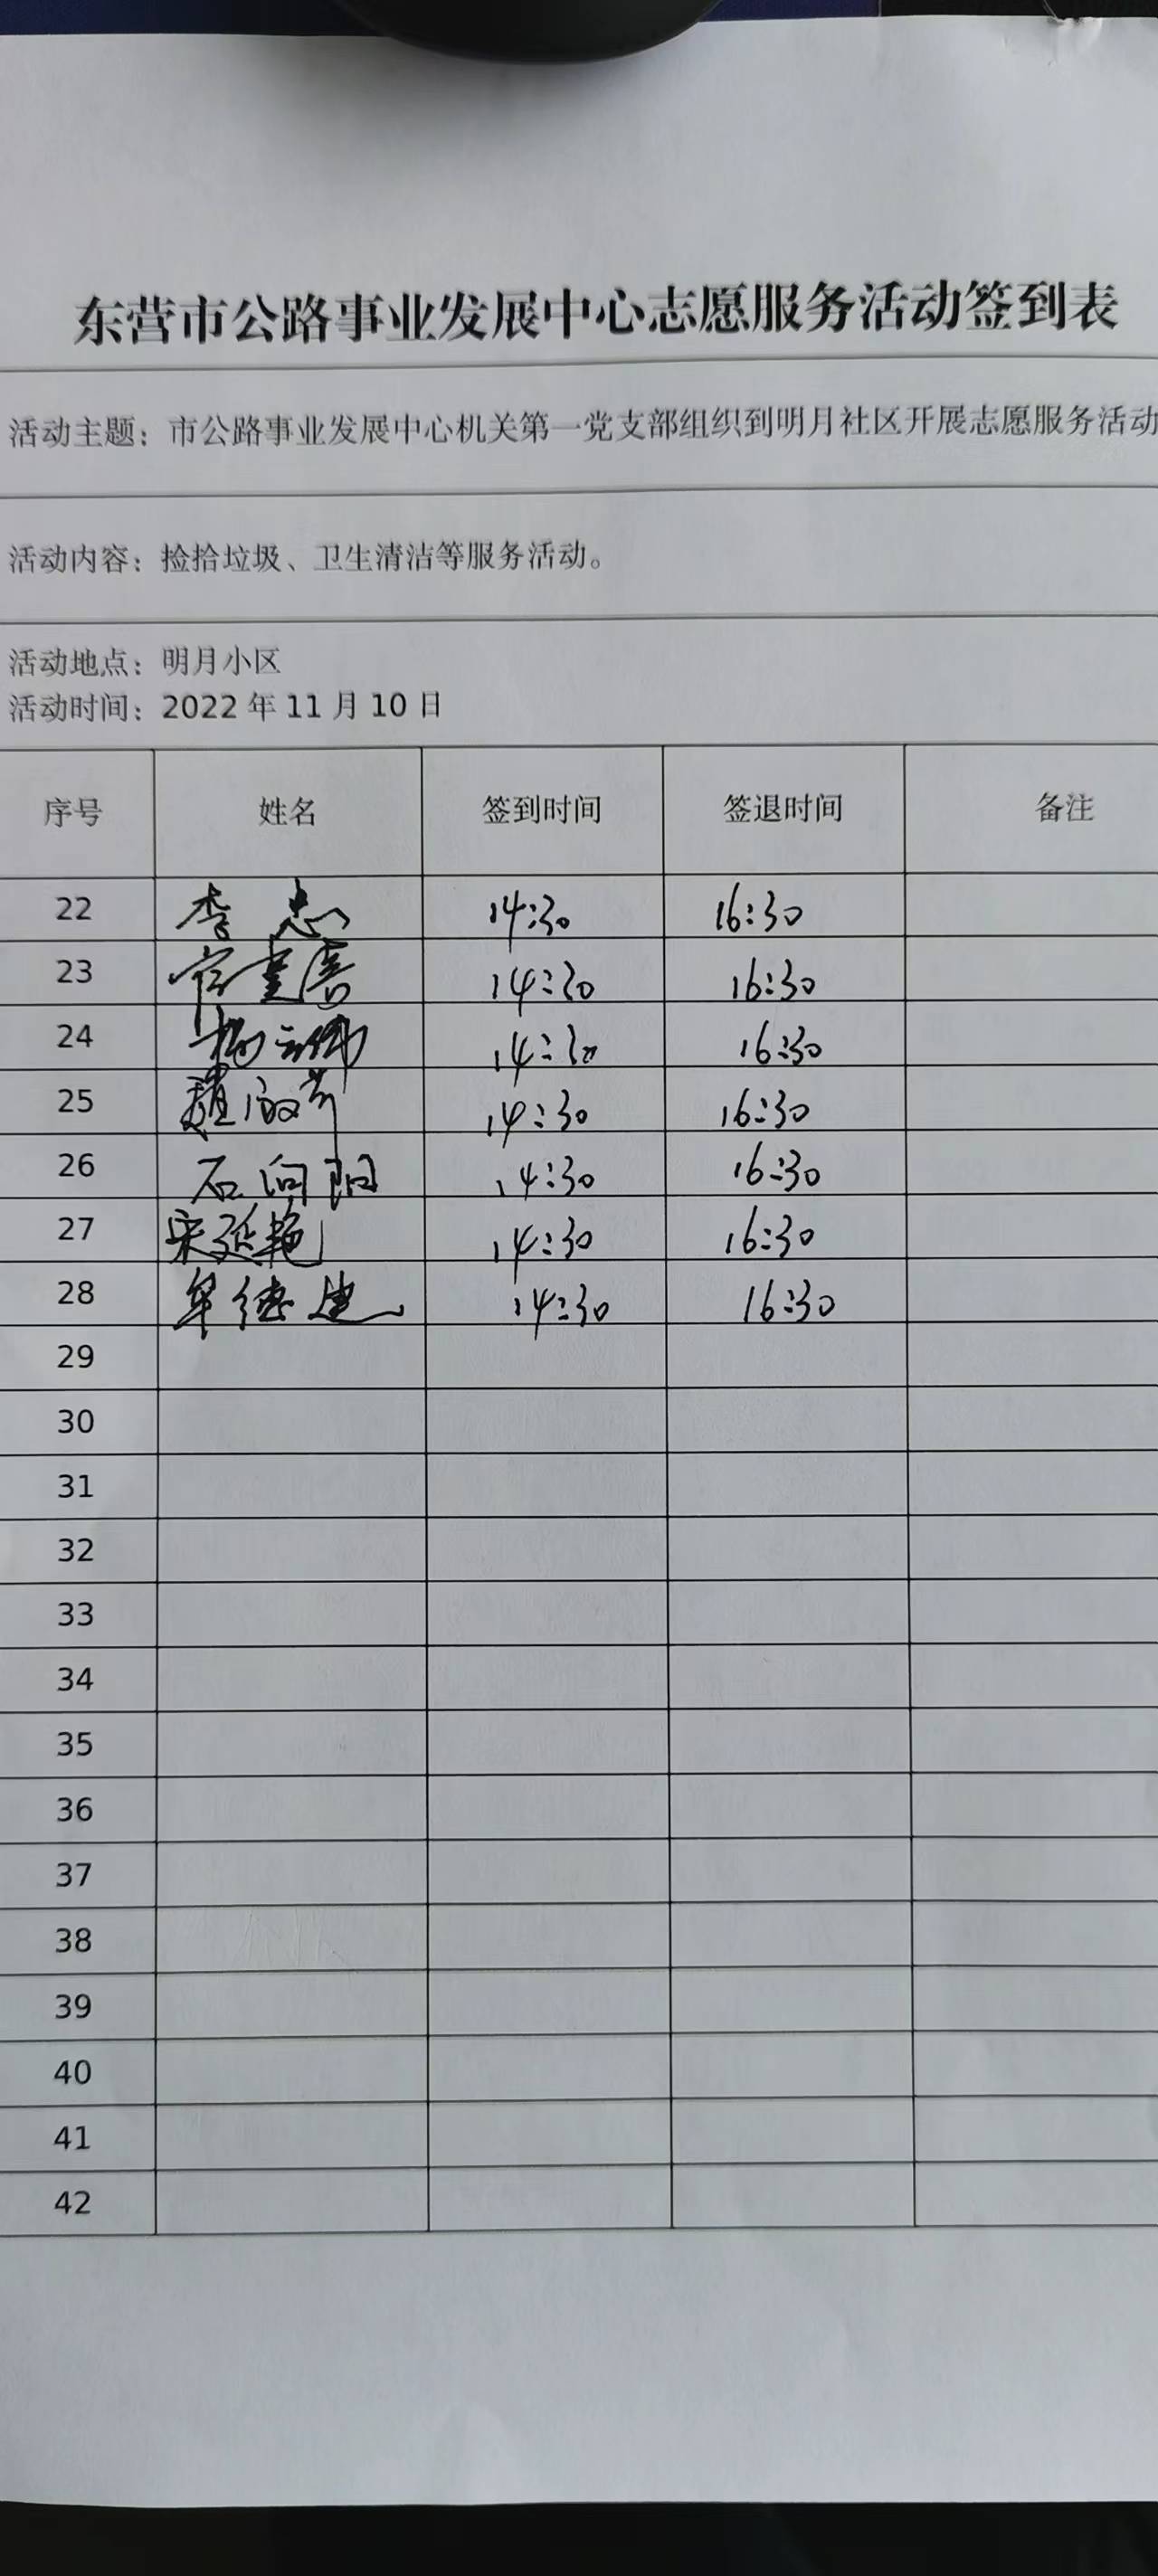 东营市公路事业发展中心志愿服务活动签到表
活动主题：市公路事业发展中心机关第一党支部组织到明月社区开展志愿服务活动
活动内容：捡拾垃圾、卫生清洁等服务活动。
活动地点：明月小区
活动时间：2022 年 11 月 10 日
序号 姓名 签到时间 签退时间 备注
22 李 忠 14:30 16:30
23 14:30 16:30
24 14:30 16:30
25 14:30 16:30
26 石向阳 14:30 16:30
27 宋延艳 14:30 16:30
28 牟德建 14:30 16:30
29
30
31
32
33
34
35
36
37
38
39
40
41
42